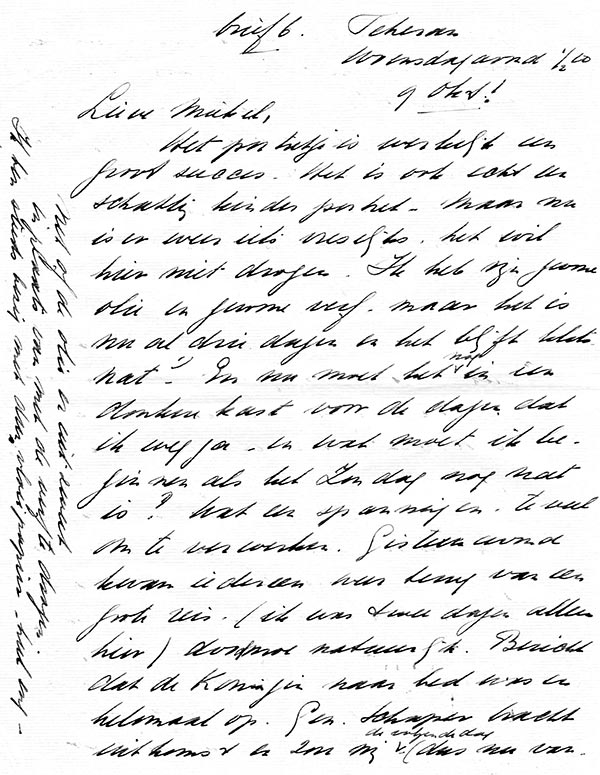 brief 6. Teheran
Woensdagavond ½ 10
9 Okt.!
Lieve Michel,
Het portretje is werkelijk een
groot succes. Het is ook echt een
schattig kinder portret - Maar nu
is er weer iets vreselijks. het wil
hier niet drogen. Ik heb mijn gewone
olie en gewone verf. maar het is
nu al drie dagen en het blijft
nat! En nu moet het nog in een
donkere kast voor de dagen dat
ik weg ga - en wat moet ik be-
ginnen als het Zondag nog nat
is? Wat een spanningen. te veel
om te verwerken. Gisteravond
kwam iedereen weer terug van een
grote reis. (ik was twee dagen alleen
hier) doodmoe natuurlijk. Bericht
dat de Koningin naar bed was en
helemaal op. Gen. Schaper bracht
uitkomst en zou mij de volgende dag (dus nu van-
Net of de olie er uit zweet
in plaats van met de verf te drogen
Ik ben steeds bezig met vloeipapier - heel erg -